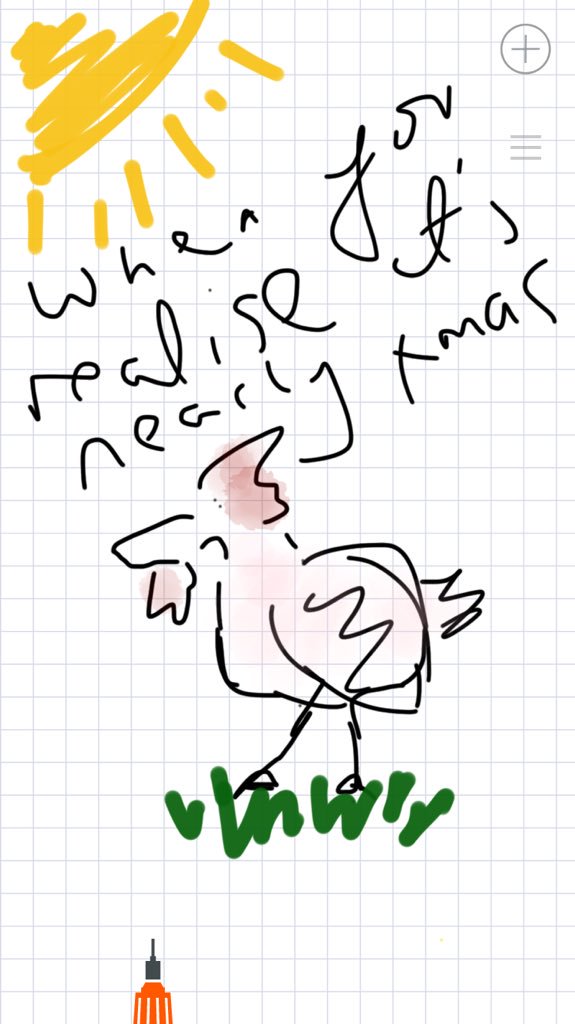 when you
realise it's
nearly xmas